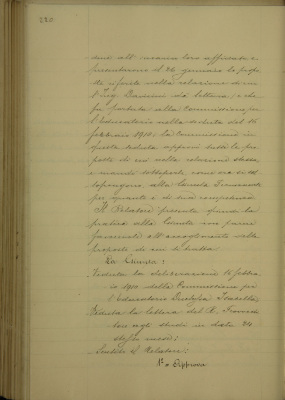 220
dini all' incarico loro affidato e
presentarono il 26 gennaio le propo
ste riferite nella relazione di cui
l' Ing. Bassini dà lettura; e che
fu portata alla Commissione per
l' Educatorio nella seduta del 16
febbraio 1910. La Commissione in
questa seduta approvò tutte le pro
poste di cui nella relazione stessa
e quindi
sottopongono alla Giunta
per quanto è di sua competenza
Il Relatore presenta quindi la
pratica alla Giunta con parere
favorevole all' accoglimento delle
proposte di cui si tratta.
La Giunta:
Veduta la deliberazione 16 febbra
io 1910 della Commissione per
l' Educatorio
Veduta la lettera del R. Provvedi
tore agli studi in data 24
stesso mese;
Sentito il Relatore:
1° Approva